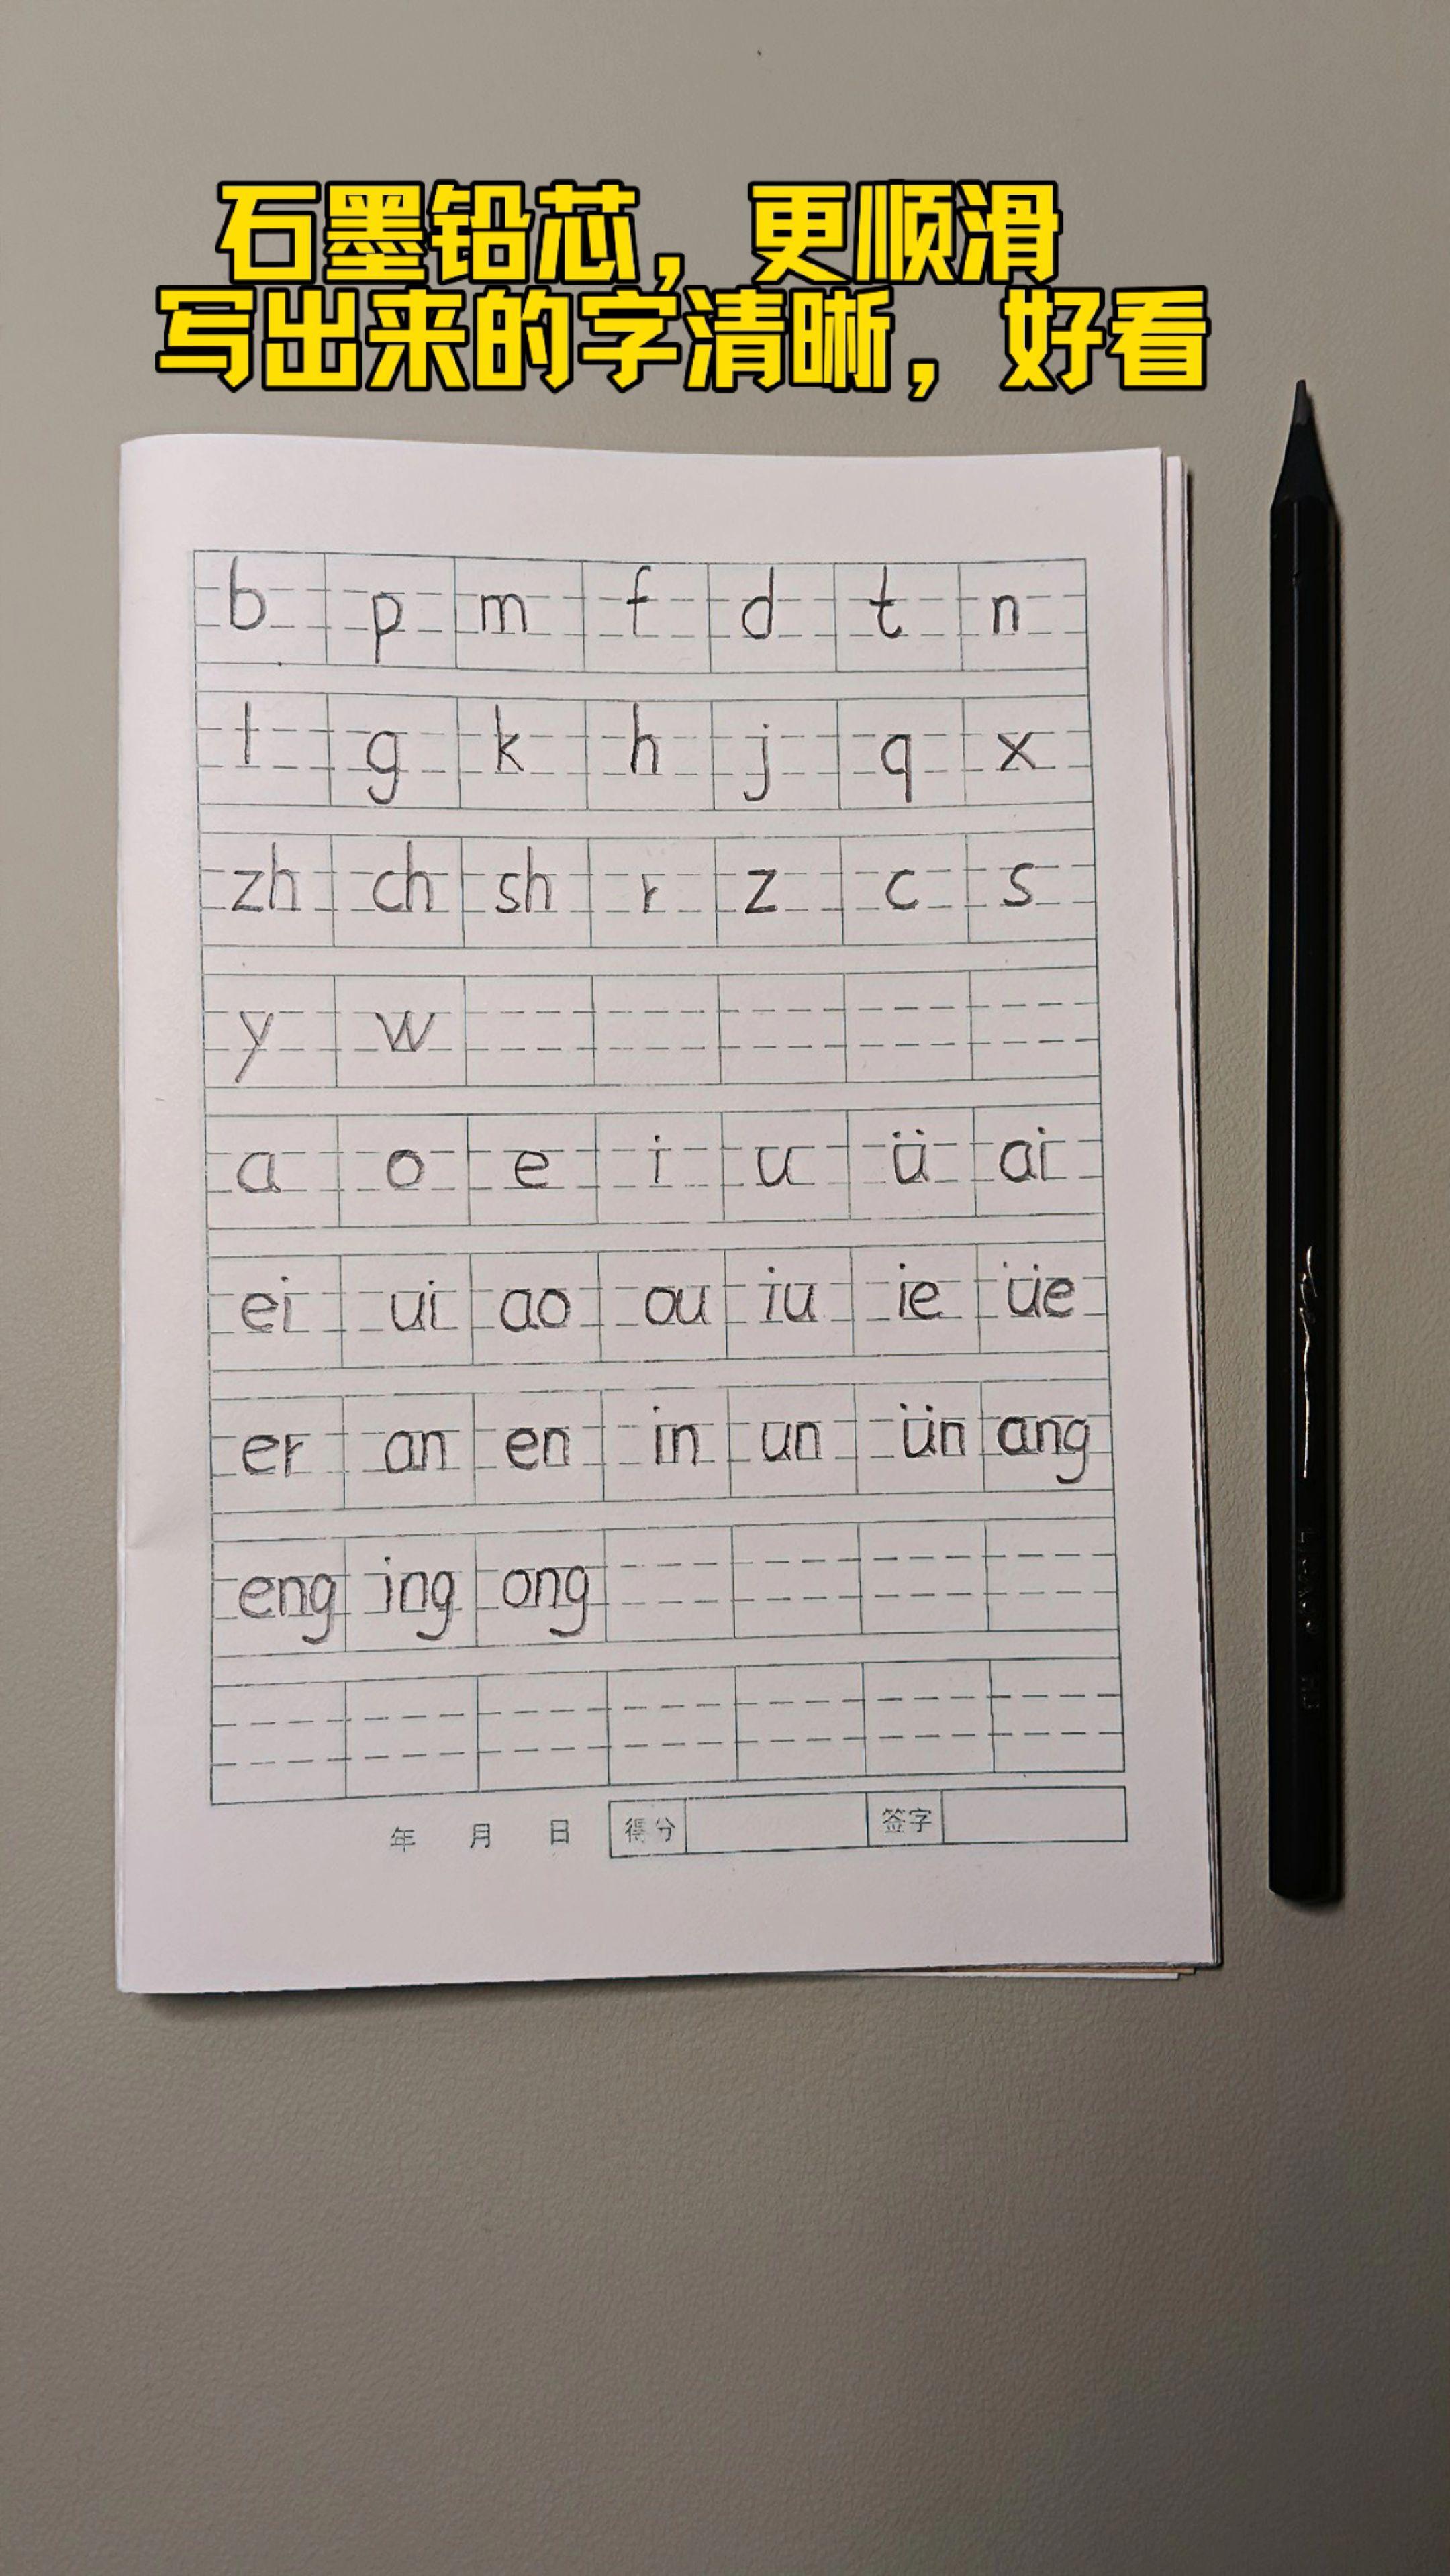 石墨铅芯，更顺滑
写出来的字清晰，好看
b p m f d t n
l g k h j q x
zh ch sh r z c s
y w
a o e i u ü ai
ei ui ao ou iu ie üe
er an en in un ün ang
eng ing ong
年 月 日 得分 签字